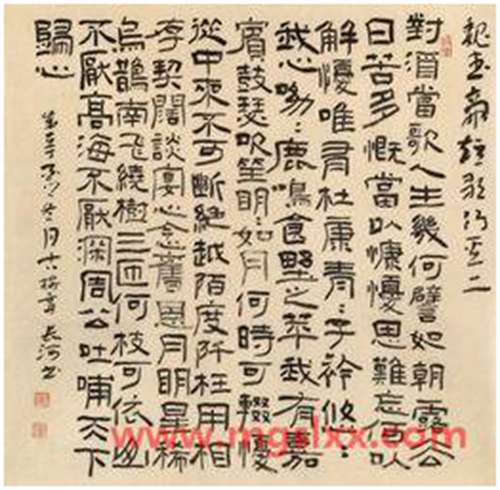 魏武帝短歌行
對酒當歌人生幾何譬如朝露去
日苦多慨當以慷憂思難忘何以
解憂唯有杜康青:子衿悠:
我心呦:鹿鳴食野之苹我有嘉
賓鼓瑟吹笙明:如月何時可輟憂
從中來不可斷絕越陌度阡枉用相
存契闊談宴心念舊恩月明星稀
烏鵲南飛繞樹三匝何枝可依山
不厭高海不厭深周公吐哺天下
歸心
長河書
www.mgslxx.com